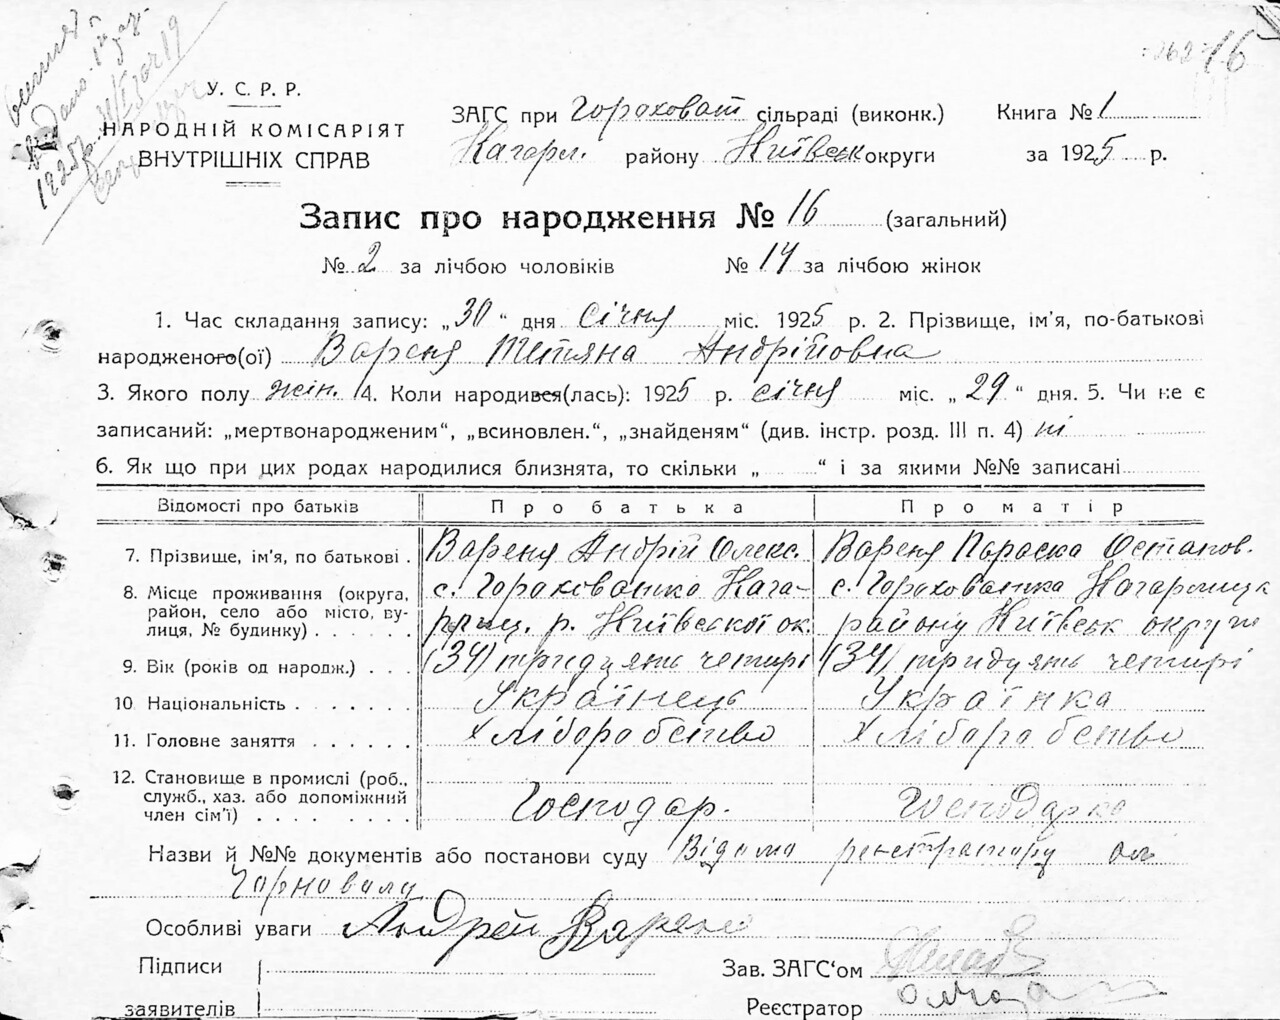 262 16
У. С. Р. Р.
НАРОДНІЙ КОМІСАРІЯТ
ВНУТРІШНІХ СПРАВ
ЗАГС при Гороховат сільраді (виконк.) Книга № 1
Кагарл. району Київськ округи за 1925 р.
Запис про народження № 16 (загальний)
№ 2 за лічбою чоловіків № 14 за лічбою жінок
1. Час складання запису: „30“ дня січня міс. 1925 р. 2. Прізвище, ім'я, по-батькові
народженого(ої) Вареня Тетяна Андрійовна
3. Якого полу жін. 4. Коли народився(лась): 1925 р. січня міс. „29“ дня. 5. Чи не є
записаний: „мертвонародженим“, „всиновлен.“, „знайденям“ (див. інстр. розд. III п. 4) ні
6. Як що при цих родах народилися близнята, то скільки „ “ і за якими №№ записані
Відомості про батьків Про батька Про матір
7. Прізвище, ім'я, по батькові . Вареня Андрій Олекс. Вареня Параска Остапов.
8. Місце проживання (округа, район, село або місто, вулиця, № будинку) с. Горохованка Кага- с. Горохованка Кагарлицк
р. Київської ок. району Київськ округи
9. Вік (років од народж.) . . . (34) тридцять четирі (34) тридцять четирі
10 Національність . . . . . . Українець Українка
11. Головне заняття . . . . . . Хліборобство Хліборобство
12. Становище в промислі (роб.,
служб., хаз. або допоміжний
член сім'ї) . . . . . . . . Господар. Господарка
Назви й №№ документів або постанови суду Відома реєстратору
Особливі уваги Андрей Варено
Підписи Зав. ЗАГС‘ом
заявителів Реєстратор